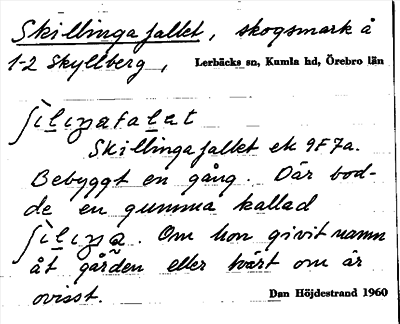 Skillingafallet, skogsmark å
1-2 Skyllberg, Lerbäcks sn, Kumla hd, Örebro län
ʃìlıŋafalat
Skillingafallet ek 9F7a.
Bebyggt en gång. Där bod-
de en gumma kallad
ʃìlıŋa. Om hon givit namn
åt gården eller tvärt om är
ovisst. Dan Höjdestrand 1960